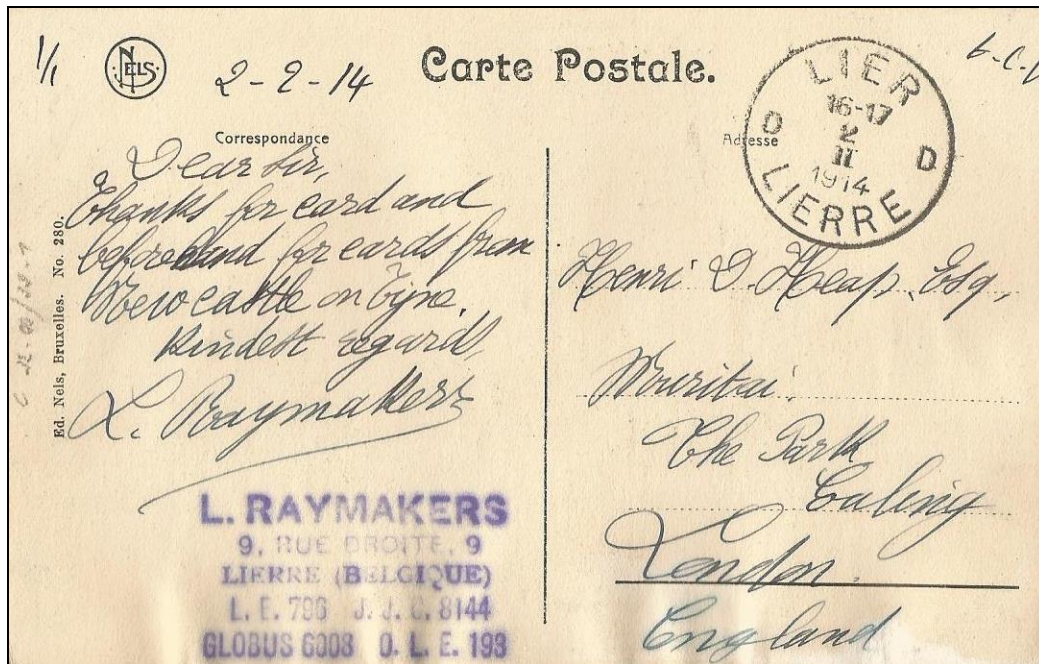 1/1
NELS
2-2-14
Carte Postale.
LIER
16-17
2
II
1914
D D
LIERRE
Correspondance
Adresse
Dear Sir,
Thanks for card and
beforehand for cards from
Newcastle on Tyne.
Kindest regards,
L. Raymakers
Ed. Nels, Bruxelles. No. 280.
L. RAYMAKERS
9, RUE DROITE, 9
LIERRE (BELGIQUE)
L. E. 796 J. J. C. 8144
GLOBUS 6008 O. L. E. 193
Henri D. Heap, Esq,
The Park
Ealing
London.
England